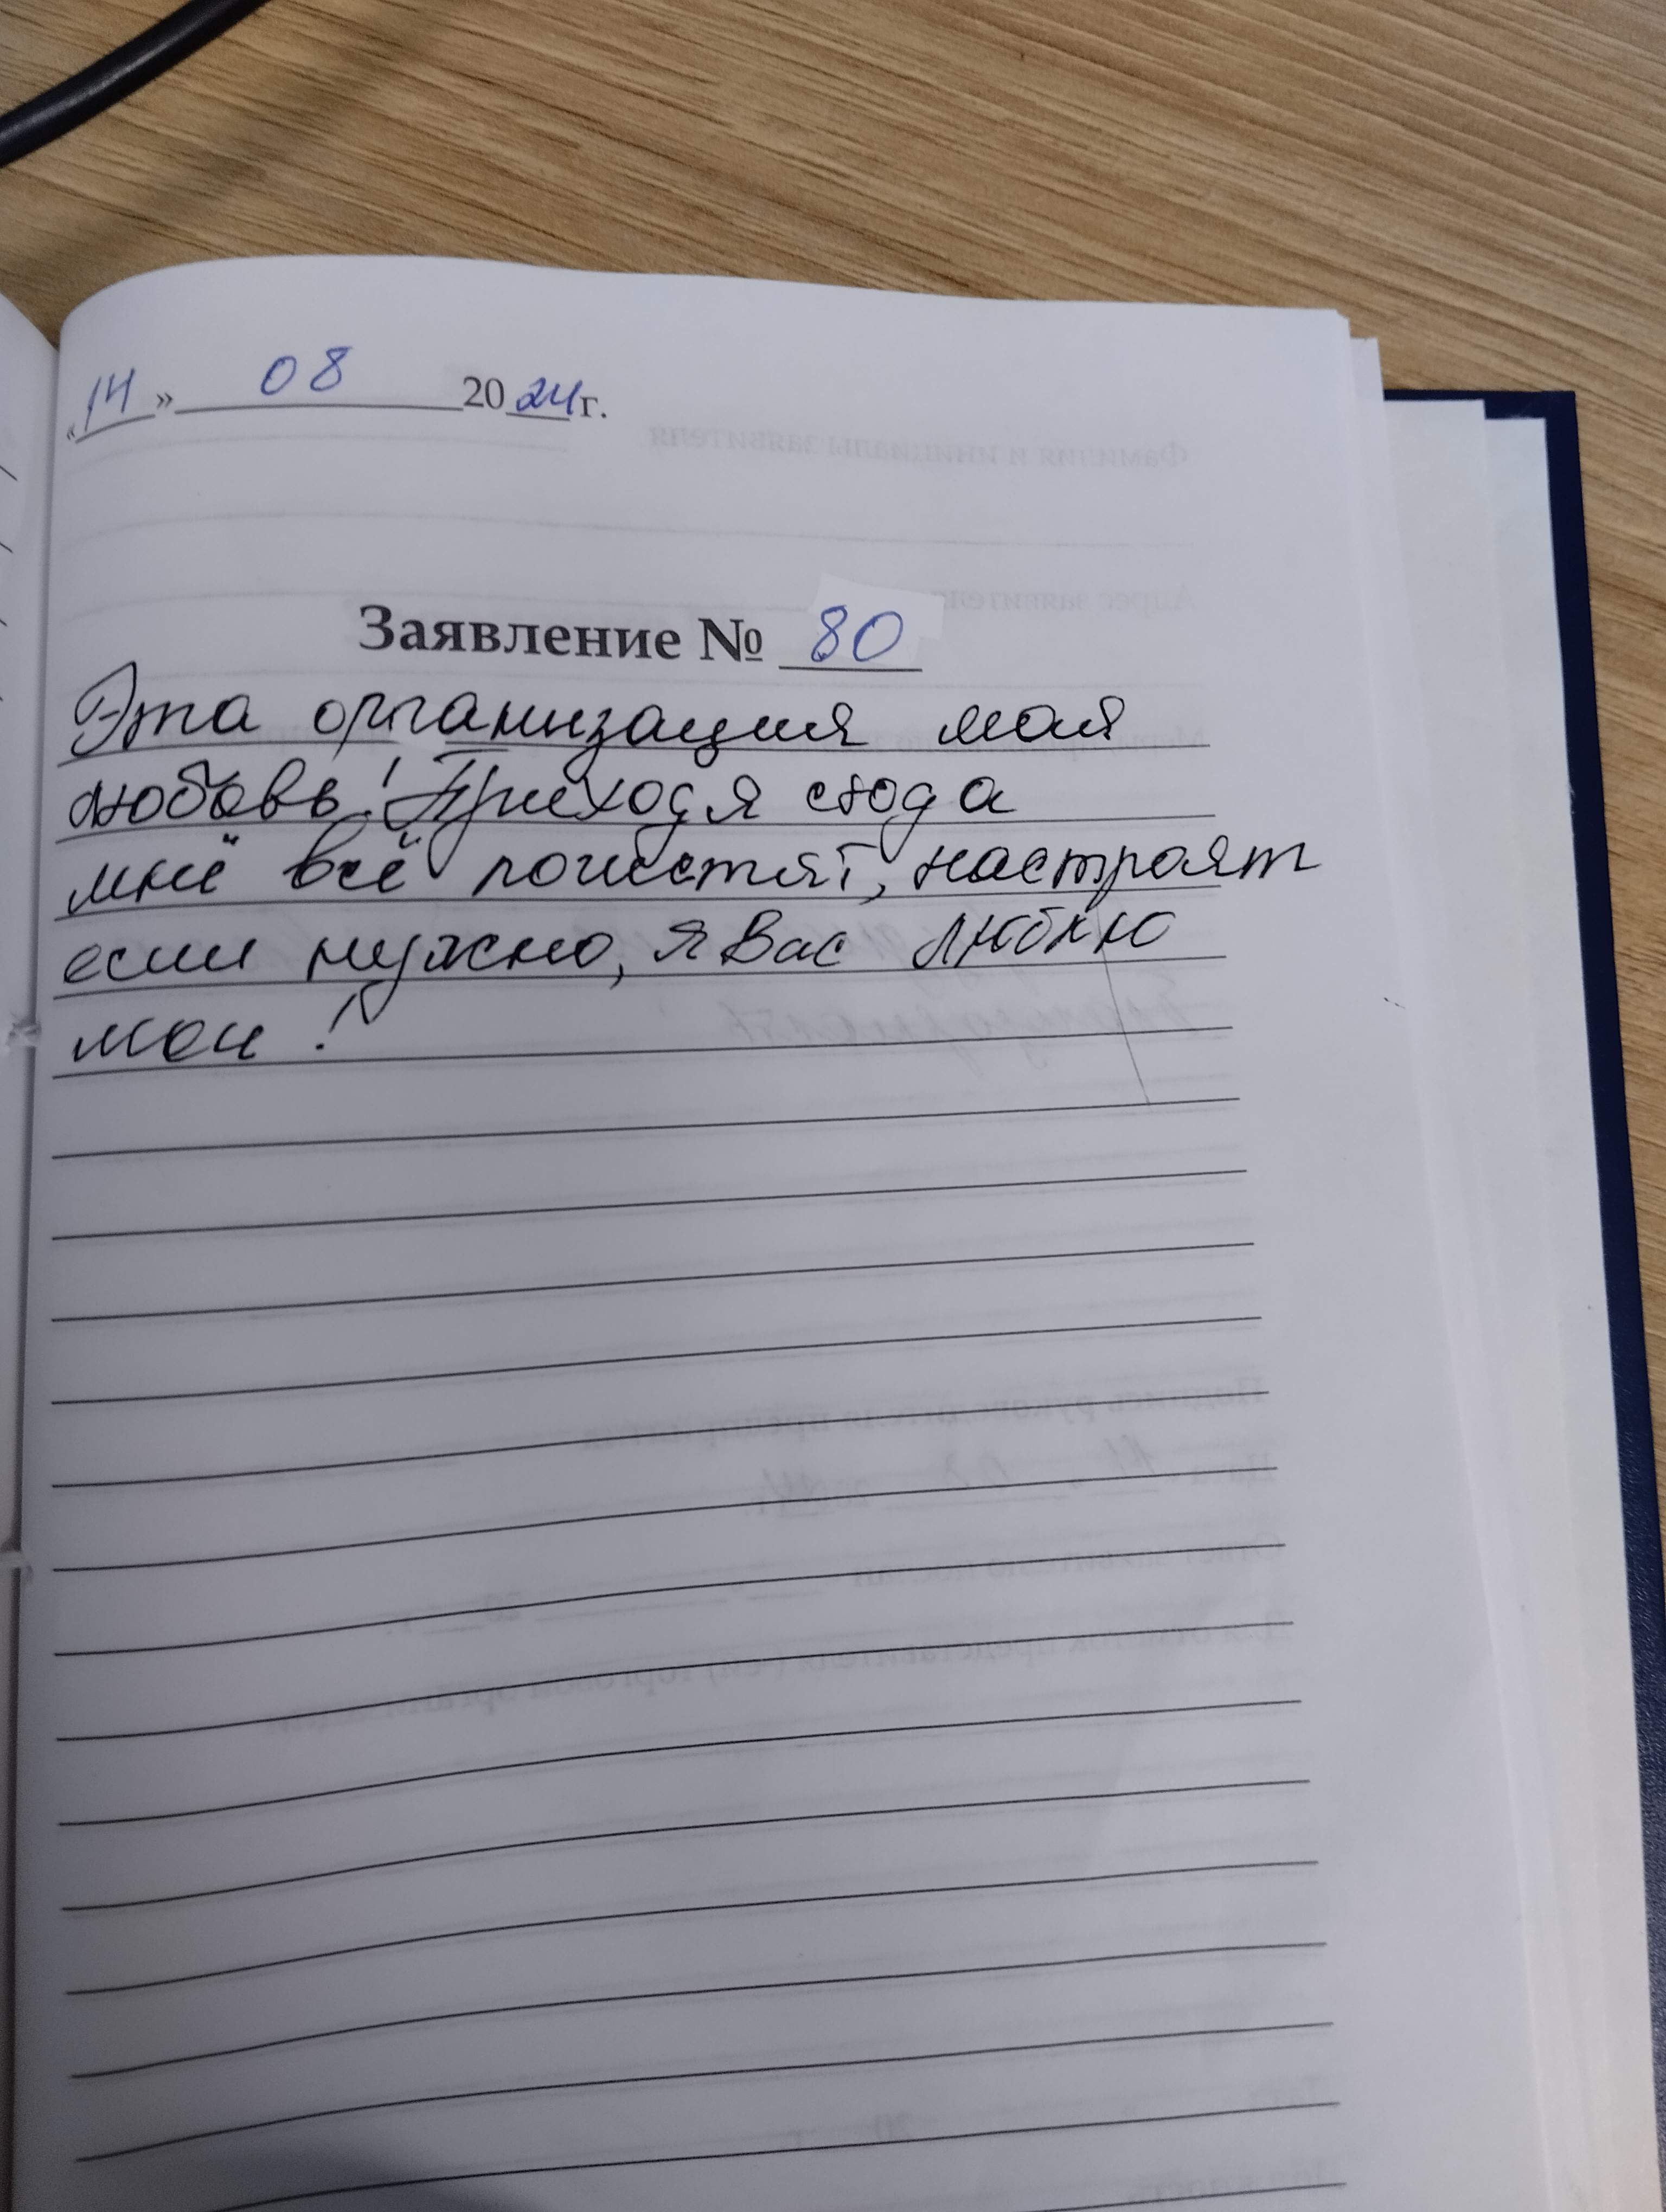 «14» 08 2024 г.
Заявление № 80
Эта организация моя
любовь! Приходя сюда
мнё всё почистят, настроят
если нужно, я Вас люблю
мои !